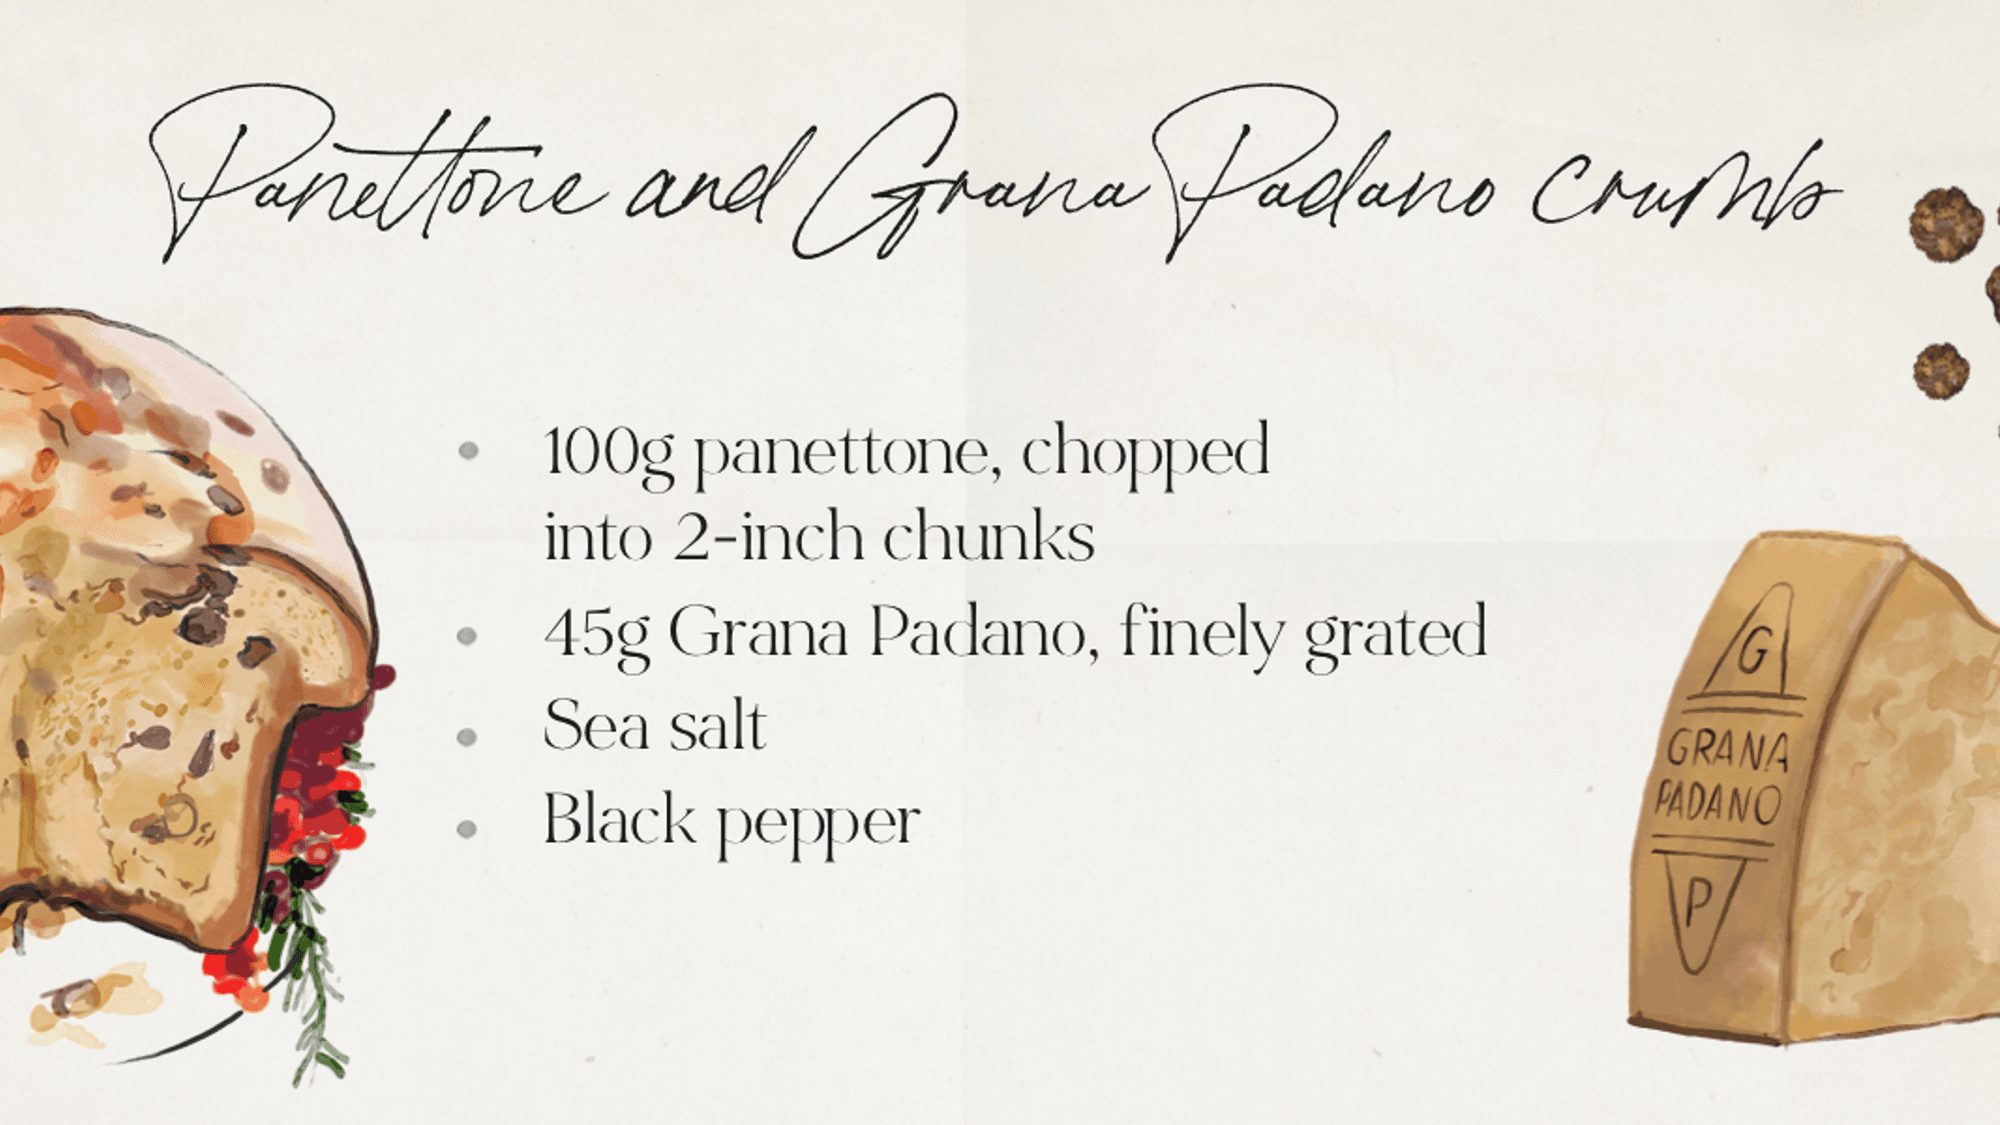 Panettone and Grana Padano crumb
• 100g panettone, chopped
into 2-inch chunks
• 45g Grana Padano, finely grated
• Sea salt
• Black pepper
G
GRANA
PADANO
P